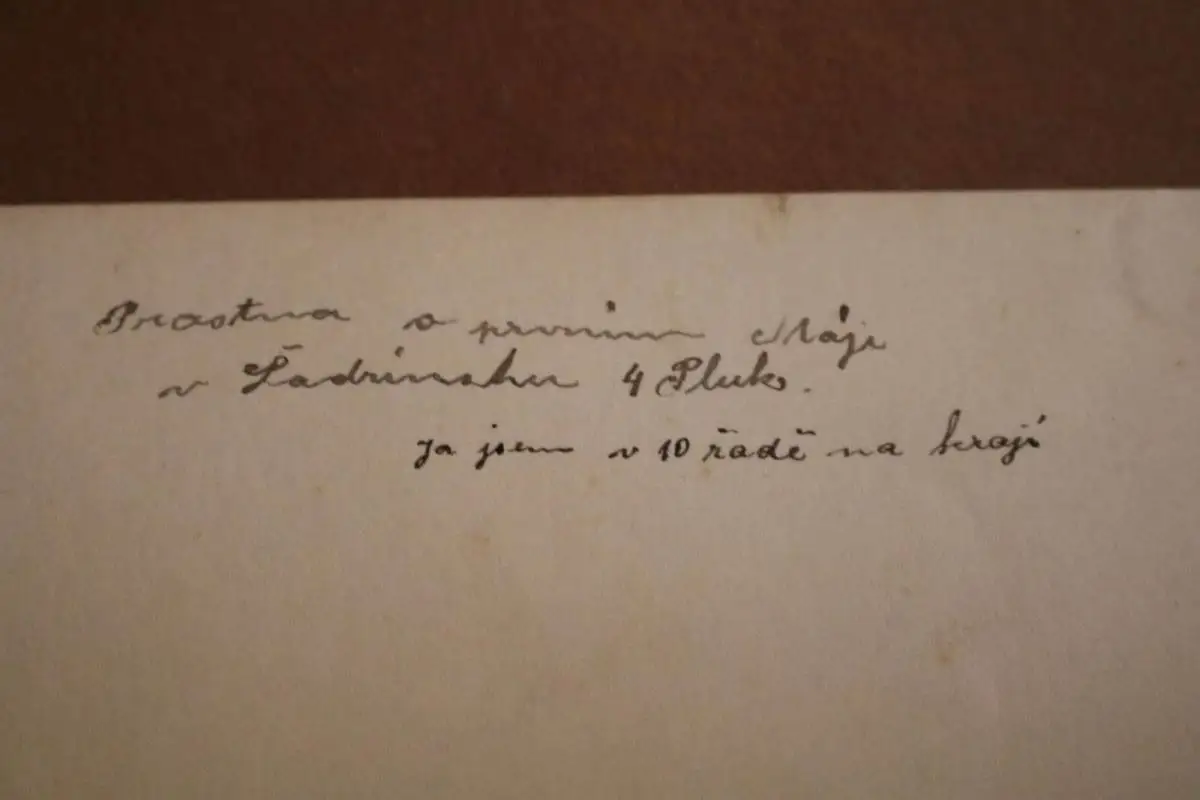 Prastna o prvnim Máji
v Šadrinsku 4 Pluk.
Ja jsem v 10 řadě na kraji